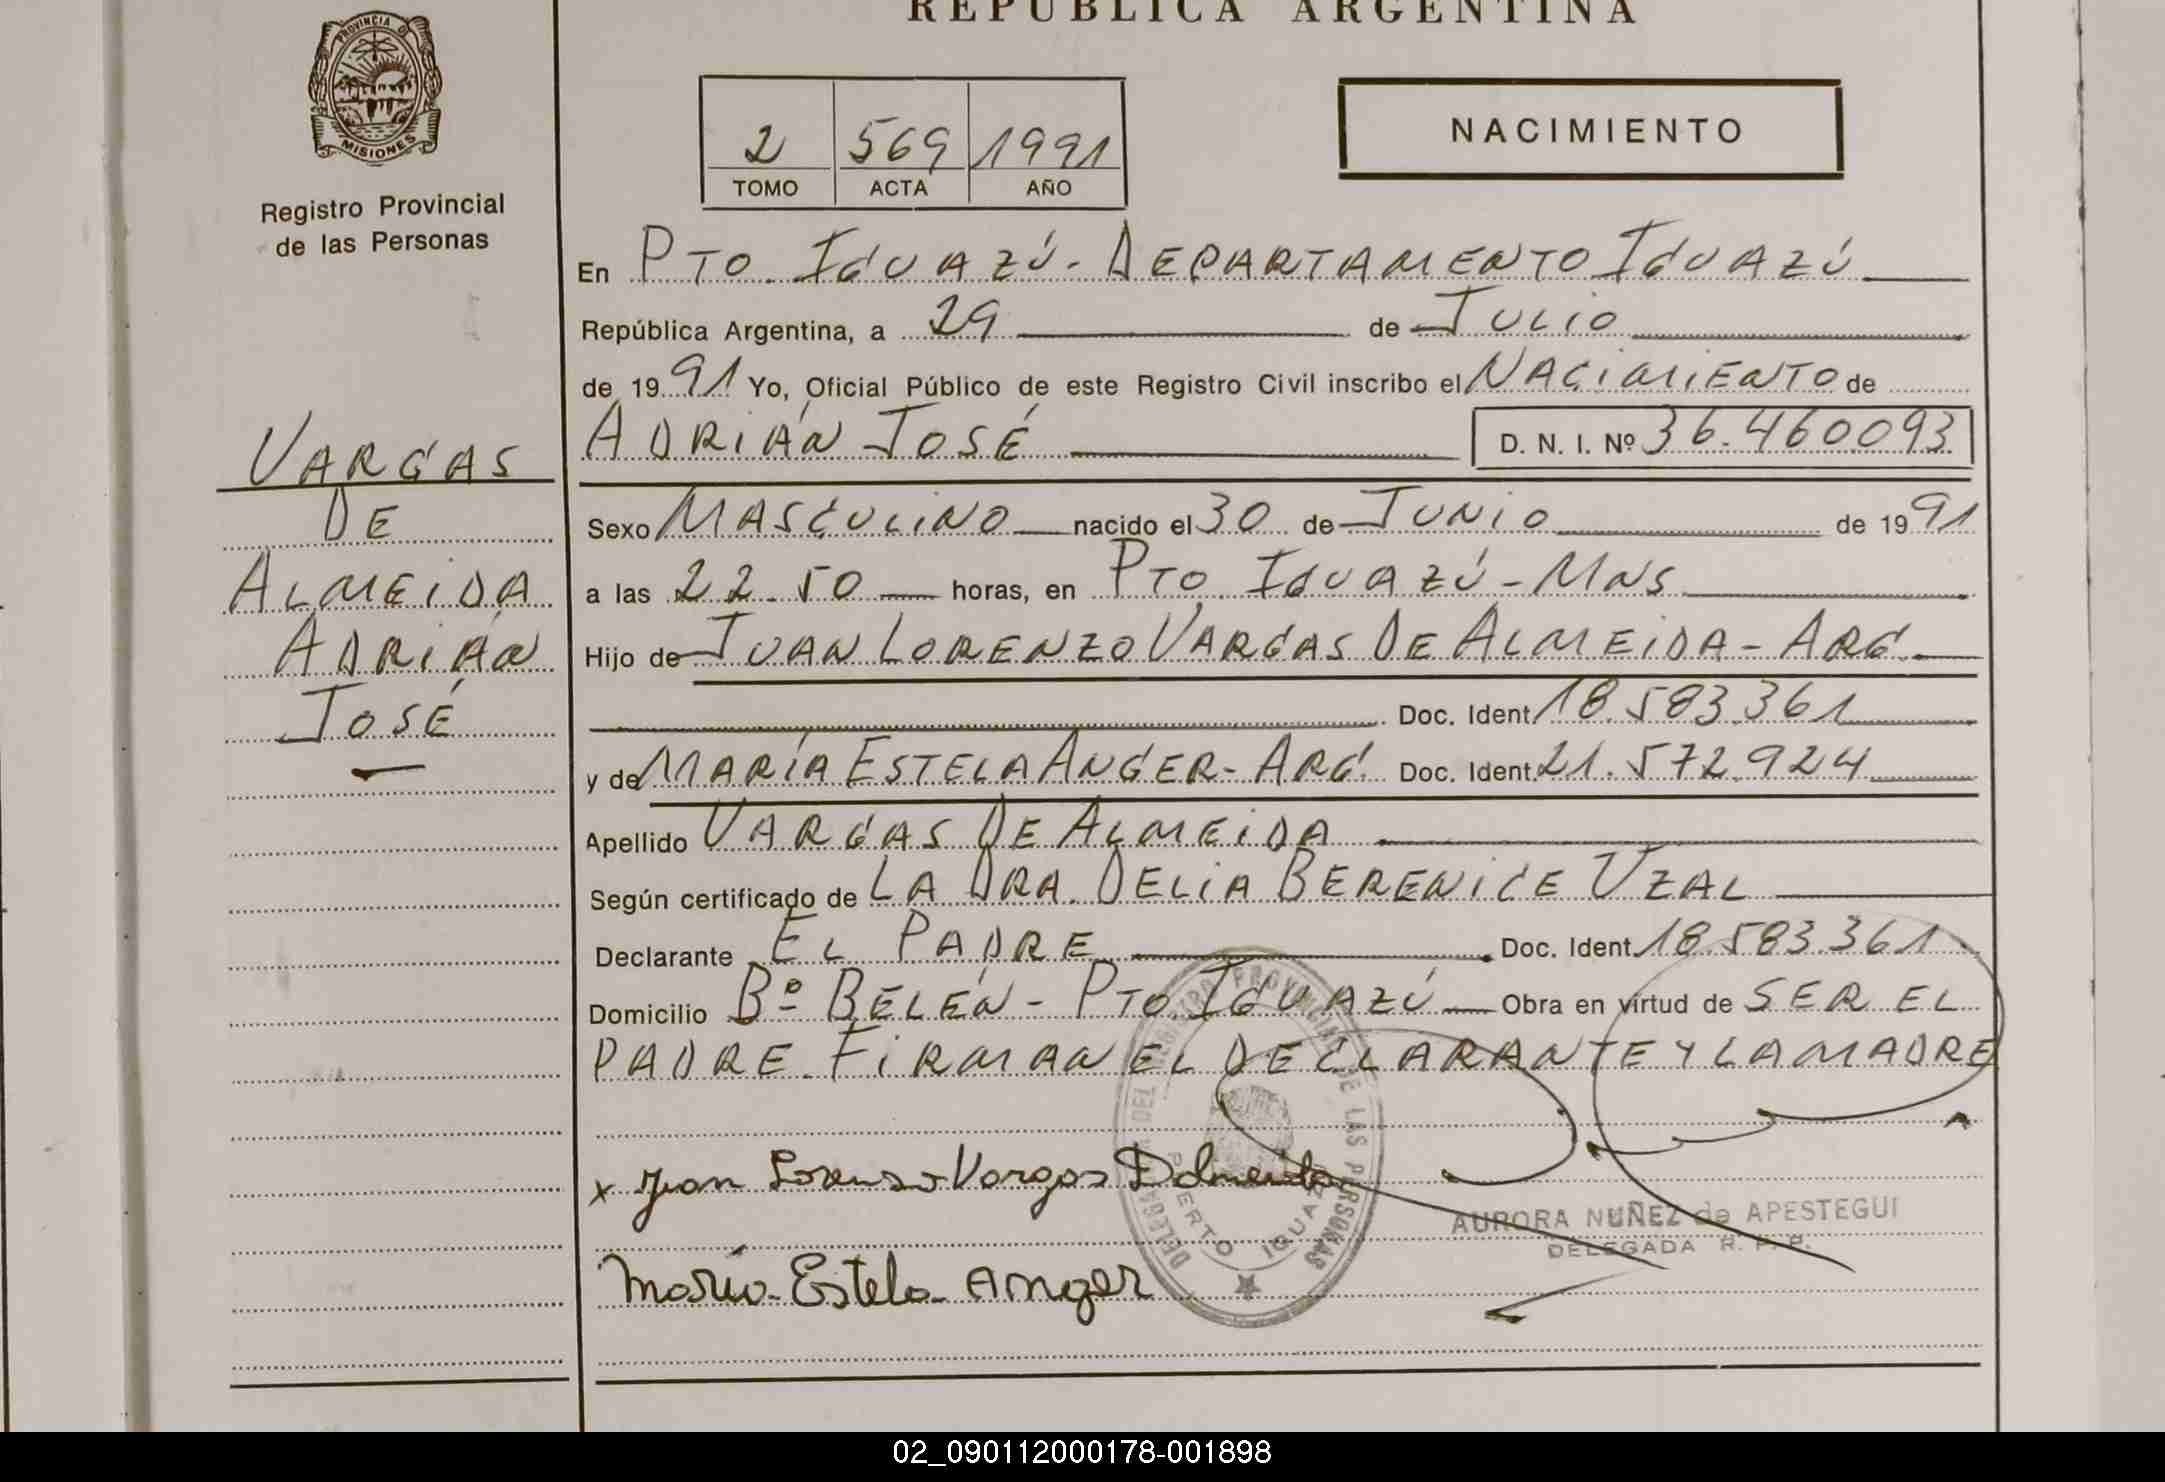 REPUBLICA ARGENTINA
PROVINCIA D
MISIONES
Registro Provincial
de las Personas
2 569 1991
TOMO ACTA AÑO
NACIMIENTO
En PTO. IGUAZÚ - DEPARTAMENTO IGUAZÚ
República Argentina, a 29 de JULIO
de 1991 Yo, Oficial Público de este Registro Civil inscribo el NACIMIENTO de
ADRIÁN JOSÉ D. N. I. Nº 36.460093
VARGAS
DE
ALMEIDA
ADRIÁN
JOSÉ
Sexo MASCULINO nacido el 30 de JUNIO de 1991
a las 22.50 horas, en PTO. IGUAZÚ - MNS
Hijo de JUAN LORENZO VARGAS DE ALMEIDA - ARG.
Doc. Ident. 18.583.361
y de MARÍA ESTELA ANGER - ARG. Doc. Ident. 21.572.924
Apellido VARGAS DE ALMEIDA
Según certificado de LA DRA. DELIA BERENICE UZAL
Declarante EL PADRE Doc. Ident. 18.583.361
Domicilio Bº BELÉN - PTO. IGUAZÚ Obra en virtud de SER EL
PADRE. FIRMAN EL DECLARANTE Y LA MADRE
x Juan Lorenzo Vargas Dalmeida
María Estela Anger
DEL REGISTRO PROVINCIAL DE LAS PERSONAS
PUERTO IGUAZU
AURORA NUÑEZ de APESTEGUI
DELEGADA R. P. P.
02_090112000178-001898